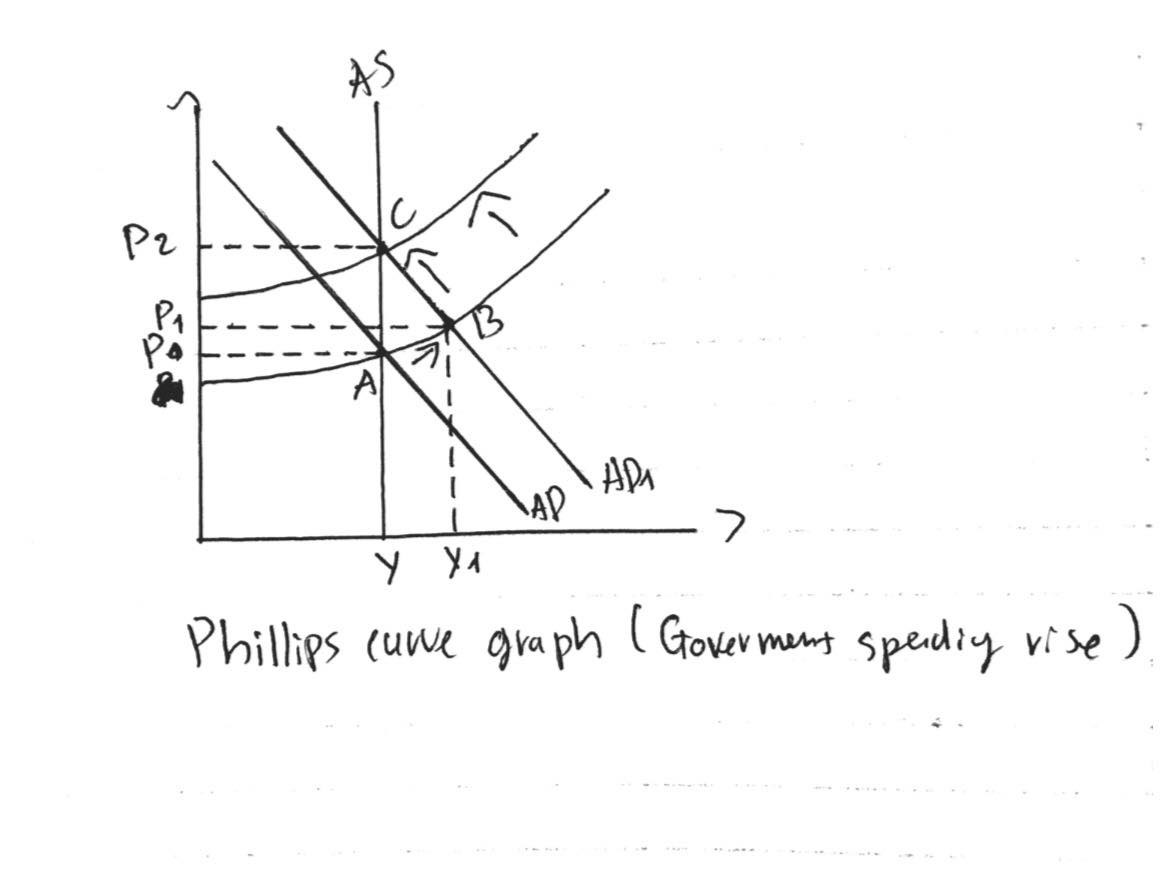 AS
C
P2
P1
B
P0
A
AD1
AD
Y Y1
Phillips curve graph (Goverment spending rise)